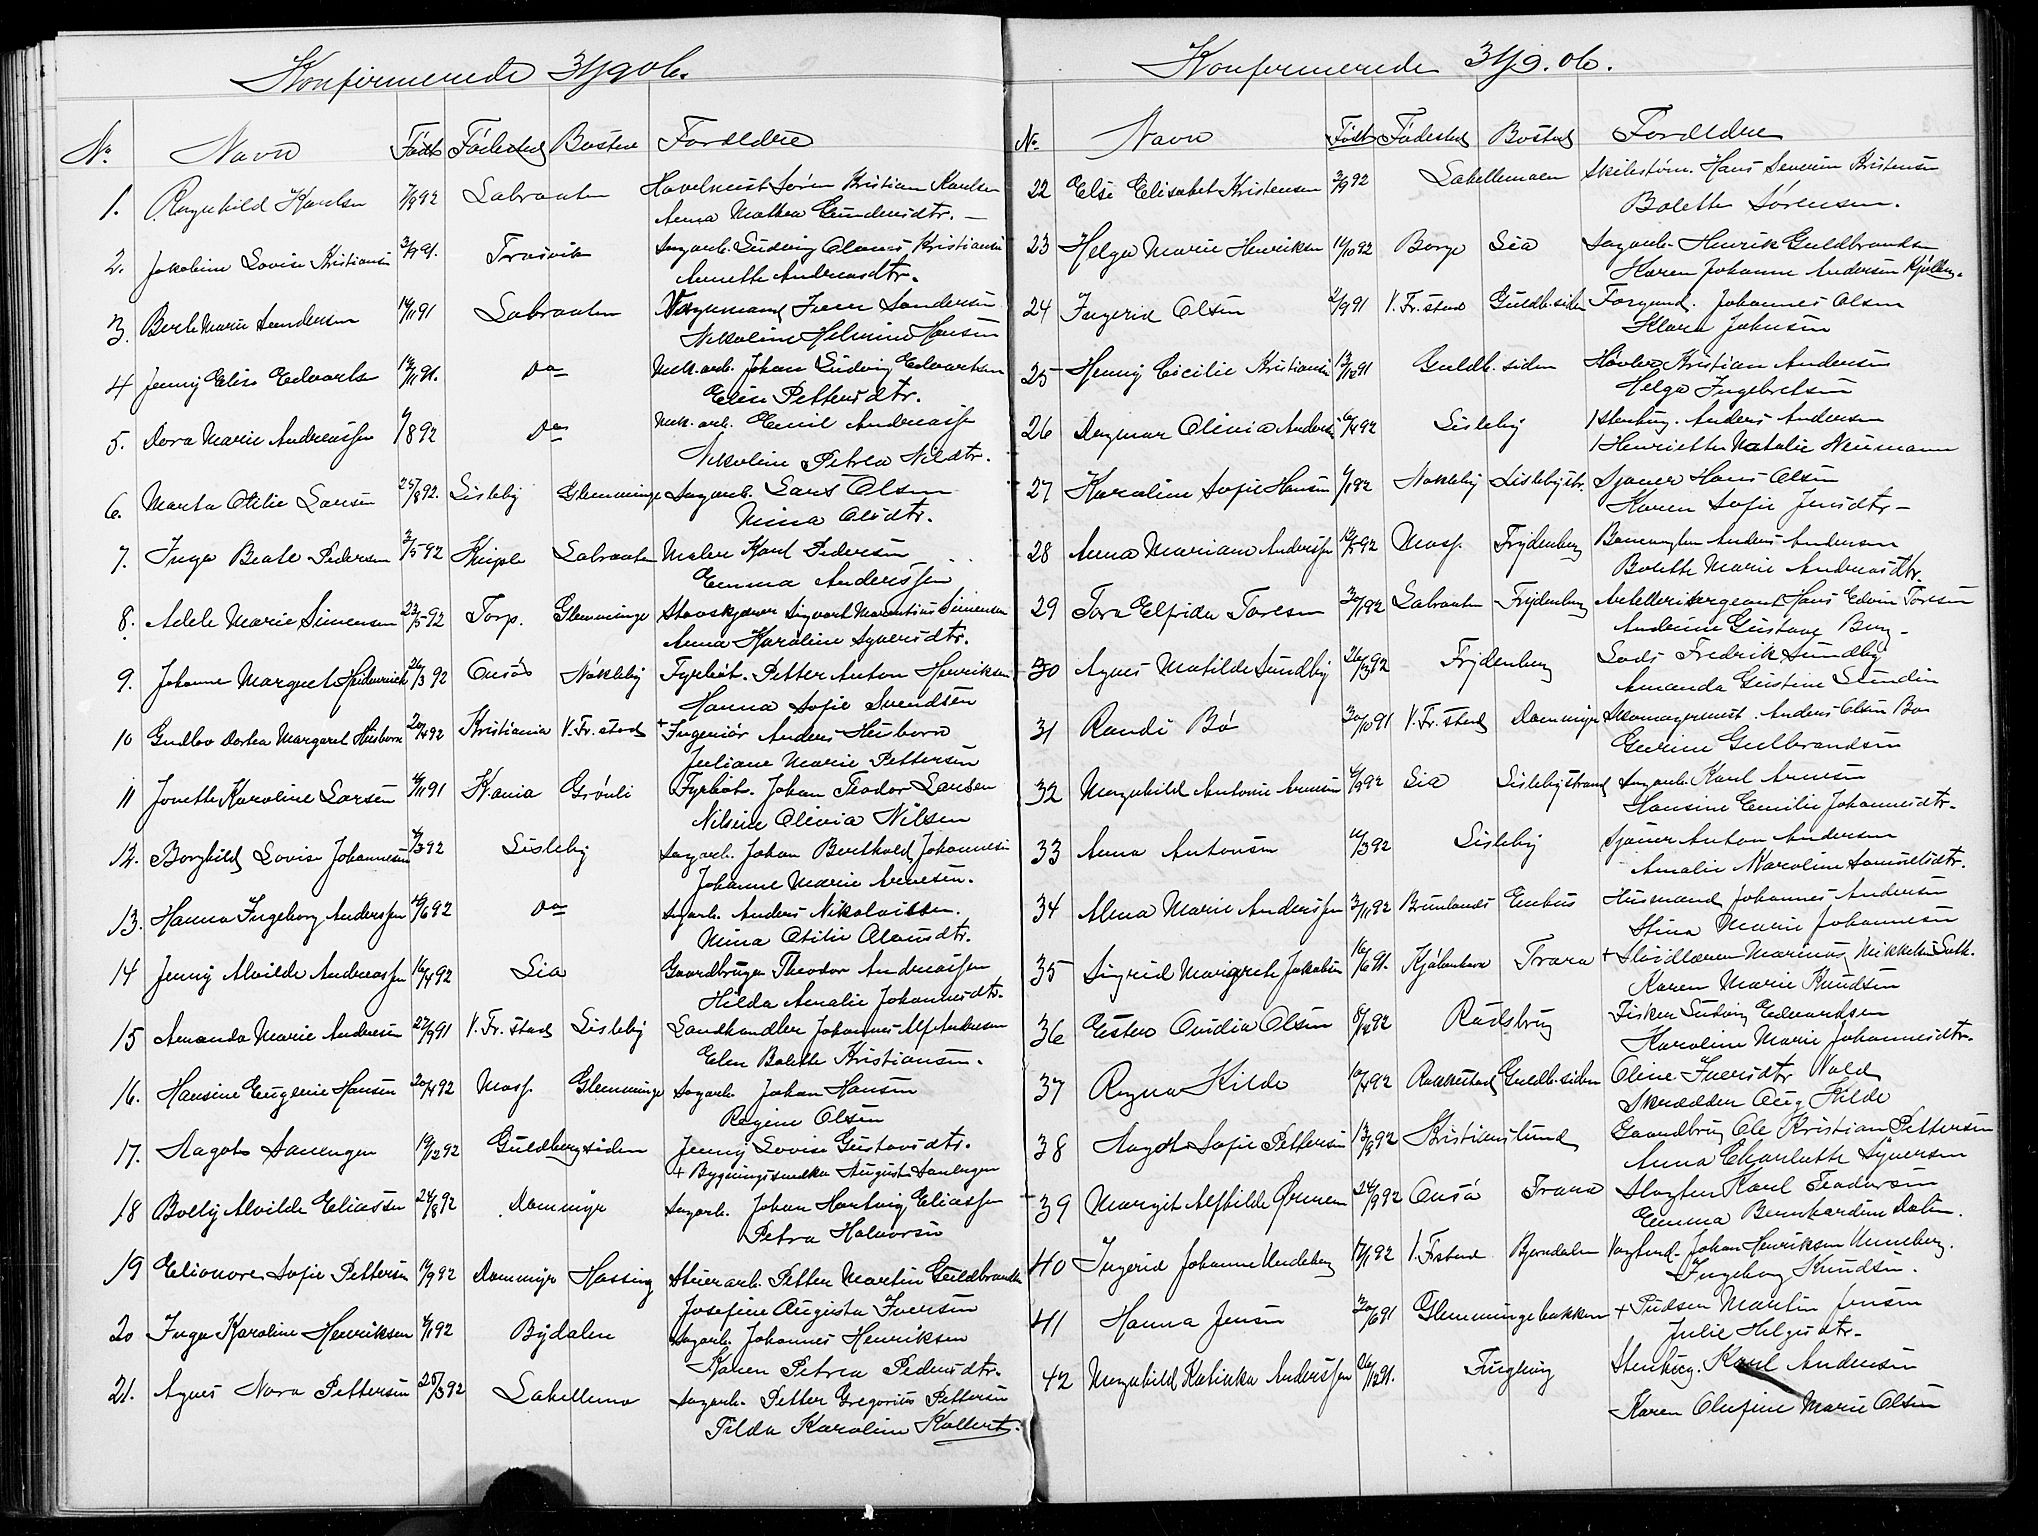 Konfirmerede 30/9 06.
No. Navn Født Fødested Bosted Forældre
1. Ragnhild Karlsen 7/9 92 Labraaten Høvelmest Søren Kristian Karlsen
Anna Mathea Gundersdtr. —
2. Jakobine Lovise Kristiansen 3/9 91. Trosvik Sagarb. Ludvig Olaves Kristiansen
Annette Andreasdtr.
3. Berte Marie Sandersen 14/11 91 Labraaten Vognmand Iver Sandersen
Nikoline Helmine Hansen
4 Jenny Elise Edvartsen 12/11 91. Do Mek. arb. Johan Ludvig Edvartsen
Eline Pettersdtr.
5. Dora Marie Andreassen 9/8 92 Do Mek. arb. Emil Andreassen
Nikoline Petrea Nilsdtr.
6. Marta Otilie Larsen 25/8 92. Lisleby Glemminge Sagarb. Lars Olsen
Mina Olsdtr.
7. Inga Beate Pedersen 3/5 92 Kniple Labraaten Maler Karl Pedersen
Emma Anderssen
8. Adele Marie Simensen 23/5 92 Torp. Glemminge Stavskjærer Sigvart Marentius Simensen
Anna Karoline Syversdtr.
9. Johanne Margret Heidenreich 26/3 92 Onsø Nøkleby Fyrbøt. Petter Anton Henriksen
Hanna Sofie Svendsen
10 Gudlov Dortea Margaret Husborn 20/4 92 Kristiania V. Fr. stad + Ingeniør Anders Husborn
Juliane Marie Pettersen
11 Jonette Karoline Larsen 4/11 91 K.ania Grønli Fyrbøt. Johan Teodor Larsen
Nilsine Olivia Nilsen
12. Borghild Lovise Johannesen 4/3 92 Lisleby Sagarb. Johan Berthold Johannesen
Johanne Marie Arnesen.
13. Hanna Ingeborg Anderssen 19/6 92 Do Sagarb. Anders Nikolaissen.
Mina Otilie Olausdtr.
14 Jenny Alvilde Andreassen 16/4 92 Lia Gaardbruger Theodor Andreassen
Hilda Amalie Johannesdtr.
15 Amanda Marie Andersen 27/9 91 V. Fr. stad Lisleby Landhandler Johannes Alf Andersen
Elen Bolette Kristiansen.
16. Hansine Eugenie Hansen 20/4 92 Moss. Glemminge Sagarb. Johan Hansen
Regine Olsen
17. Aagot Sanengen 19/12 92 Guldbergsiden Jenny Lovise Gustavsdtr.
+ Bygningssnedker August Sanengen
18 Bolly Alvilde Eliassen 24/8 92 Dammyr Sagarb. Johan Hartvig Eliassen
Petra Halvorsen
19 Elionore Sofie Pettersen 19/9 92 Dammyr Hassing Stuerarb. Petter Martin Guldbrandsen
Josefine Augusta Iversen
20 Inga Karoline Henriksen 4/1 92 Bydalen Sagarb. Johannes Henriksen
Karen Petrea Pedersdtr.
21. Agnes Nora Pettersen 25/3 92 Lahellemo Sagarb. Petter Gregorius Pettersen
Tilda Karoline Kollerts.
Konfirmerede 30/9. 06.
No. Navn Født Fødested Bosted Forældre
22 Else Elisabet Kristensen 3/9 92 Lahellemoen Skibstøm. Hans Severin Kristensen
Bolette Sørensen.
23 Helga Marie Henriksen 14/10 92 Borge Lia Sagarb. Henrik Guldbrandsen
Karen Johanne Andersen
24 Ingerid Olsen 4/9 91 V. Fr. stad Guldb. siden Johannes Olsen
Klara Johnsen
25 Henny Cicilie Kristiansen 13/12 91 Guldb. siden Høvler Kristian Andersen
Helga Ingebretsen
26 Dagmar Olivia Andersen 6/4 92 Lisleby Stenhug. Anders Andersen
Henriette Natalie Neumann
27 Karoline Sofie Hansen 9/1 92 Nøkleby Lislebystr. Sjauer Hans Olsen
Karen Sofie Jensdtr —
28 Anna Mariane Anderssen 12/5 92 Moss. Frydenberg Banevogter Anders Andersen
Bolette Marie Andreasdtr.
29 Tora Elfrida Toresen 30/1 92 Labraaten Frydenberg Artellerisergeant Hans Edvin Toresen
Andrine Gustava Berg —
30 Agnes Matilde Sundby 26/3 92 Frydenberg Lods Fredrik Sundby
Amanda Gustine Lundin
31 Randi Bø 30/10 91 V. Fr. stad Dammyr Skomagermest. Anders Olsen Bø
Gurine Gulbrandsen
32 Magnhild Antonie Arnesen 6/9 92 Lia Lislebystrand Sagarb. Karl Arnesen
Hansine Emilie Johannesdtr.
33 Anna Antonsen 10/3 92 Lisleby Sjauer Anton Andersen
Amalie Karoline Samuelsdtr.
34 Alma Marie Anderssen 3/11 92 Brunlands Enhus Husmand Johannes Andersen
Stina Marie Johannesen
35 Sigrid Margrete Jakobsen 16/6 91. Kjøbenhavn Trara + Sløidlærer Marinus Mikkelsen
Karen Marie Knudsen
36 Ester Ovidia Olsen 8/4 92 Rødsberg Fisker Ludvig Edvardsen
Karoline Marie Johannesdtr.
37 Ragna Kilde 10/4 92 Rakkestad Guldb. siden Oline Iversdtr Wold
Skrædder Aug Kilde
38 Aagot Sofie Pettersen 13/9 92 Kristianslund Gaardbrug Ole Kristian Pettersen
Anna Charlotte Syversen
39 Margit Alfhilde Ørmen 24/9 92 Onsø Trara Slagter Karl Teodorsen
Emma Bernhardine Dalen.
40 Ingerid Johanne Undeberg 17/1 92 V. Frstad Bjørndalen Vagtmd. Johan Henriksen Unneberg.
Ingeborg Knudsen.
41 Hanna Jensen 30/6 91 Glemmingebakken + Pudser Martin Jensen
Julie Helgesdtr.
42 Magnhild Katinka Anderssen 26/12 91. Fuglevig Stenhug. Karl Andersen
Karen Olufine Marie Olsen